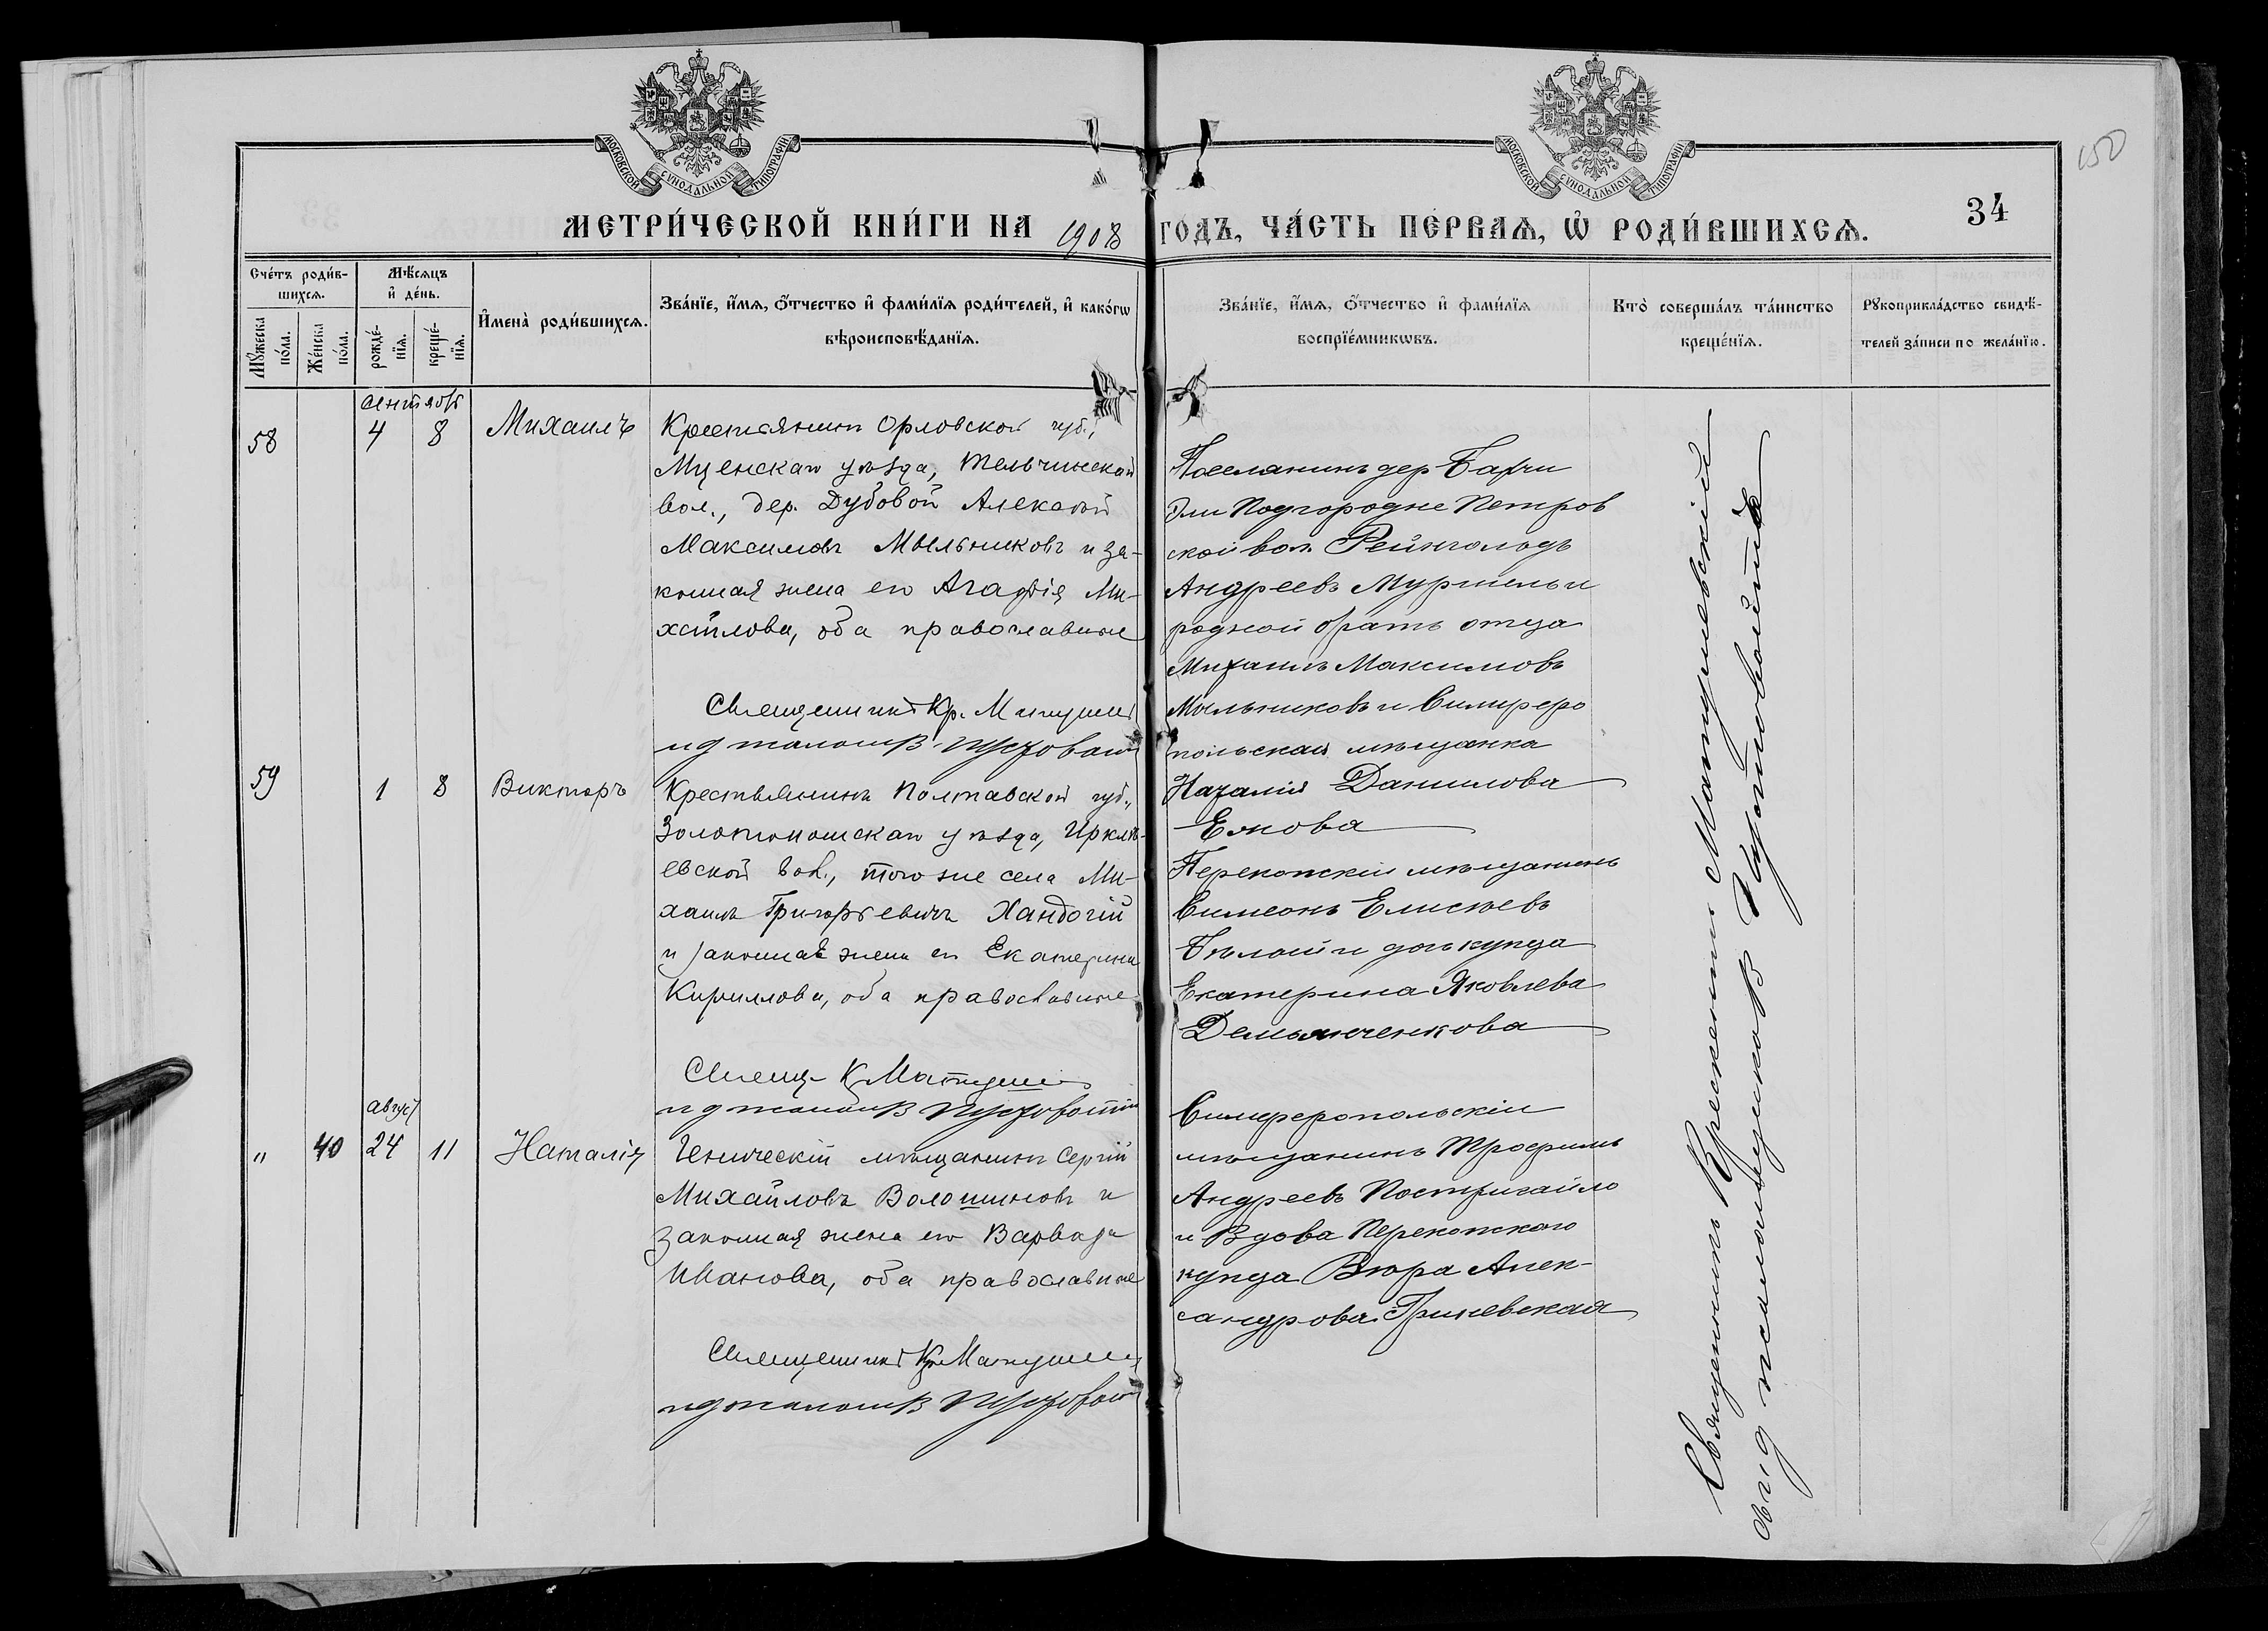 МОСКОВСКОЙ СѴНОДАЛЬНОЙ ТИПОГРАФІИ
МОСКОВСКОЙ СѴНОДАЛЬНОЙ ТИПОГРАФІИ
150
34
МЕТРИ́ЧЕСКОЙ КНИ́ГИ НА 1908 ГОДЪ, ЧА́СТЬ ПЕ́РВАѦ, Ѡ҆ РОДИ́ВШИХСѦ.
Сче́тъ роди́в-
шихсѧ.
Мꙋ́жеска
по́ла.
Же́нска
по́ла.
Мѣ́сѧцъ
и҆ де́нь.
рожде́-
нїѧ.
креще́-
нїѧ.
И҆мена̀ роди́вшихсѧ.
Зва́нїе, и҆́мѧ, ѻ҆́тчество и҆ фами́лїѧ роди́телей, и҆ како́гѡ
вѣроисповѣ́данїѧ.
Зва́нїе, и҆́мѧ, ѻ҆́тчество и҆ фами́лїѧ
воспрїе́мникѡвъ.
Кто̀ соверша́лъ та́инство
креще́нїѧ.
Рꙋкоприкла́дство свидѣ́-
телей за́писи по жела́нїю.
сентябр
58
4 8
Михаилъ
Крестьянинъ Орловской губ.,
Мценскаго уѣзда, Тельчинской
вол., дер. Дубовой Алексѣй
Максимовъ Мыльниковъ и за-
конная жена его Агафія Ми-
хайлова, оба православные
Священникъ Кр. Матушев
и д псаломщ В. Пустовойт
Поселянинъ дер Барчи
Эли Подгородне Петров
ской вол. Рейнгольдъ
Андреевъ Мурмель и
родной братъ отца
Михаилъ Максимовъ
Мыльниковъ и Симферо
польская мѣщанка
Наталія Данилова
Ежова
59
1 8
Викторъ
Крестьянинъ Полтавской губ.,
Золотоношскаго уѣзда, Ирклѣ-
евской вол., того же села Ми-
хаилъ Григорьевичъ Хандогій
и законная жена его Екатерина
Кириллова, оба православные
Свящ. К Матушев
и д псаломщ В Пустовойт
Перекопскій мѣщанинъ
Симеонъ Елисѣевъ
Бѣлый и дочь купца
Екатерина Яковлева
Демьянченкова
август
" 40 24 11
Наталія
Геническій мѣщанинъ Сергій
Михайловъ Волошиновъ и
законная жена его Варвара
Иванова, оба православные
Священникъ Кр Матушев
и д псаломщ В Пустовойт
Симферопольскій
мѣщанинъ Трофимъ
Андреевъ Постригайло
и Вдова Перекопскаго
купца Вѣра Алек-
сандрова Гриневская
Священникъ Крискентъ Матушевскій
съ и д псаломщикомъ В Пустовойтъ